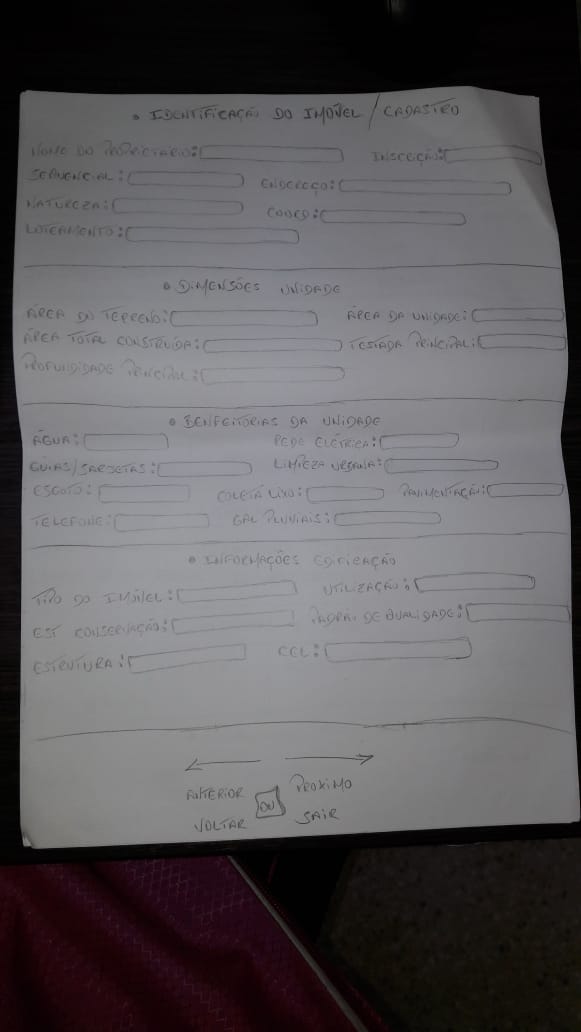 • IDENTIFICAÇÃO DO IMÓVEL / CADASTRO
NOME DO PROPRIETÁRIO: INSCRIÇÃO:
SEQUENCIAL: ENDEREÇO:
NATUREZA: COORD:
LOTEAMENTO:
• DIMENSÕES UNIDADE
ÁREA DO TERRENO: ÁREA DA UNIDADE:
ÁREA TOTAL CONSTRUÍDA: TESTADA PRINCIPAL:
PROFUNDIDADE PRINCIPAL:
• BENFEITORIAS DA UNIDADE
ÁGUA: REDE ELÉTRICA:
GUIAS/SARJETAS: LIMPEZA URBANA:
ESGOTO: COLETA LIXO: PAVIMENTAÇÃO:
TELEFONE: GAL PLUVIAIS:
• INFORMAÇÕES EDIFICAÇÃO
TIPO DO IMÓVEL: UTILIZAÇÃO:
EST CONSERVAÇÃO: PADRÃO DE QUALIDADE:
ESTRUTURA:
ANTERIOR PROXIMO
OU
VOLTAR SAIR